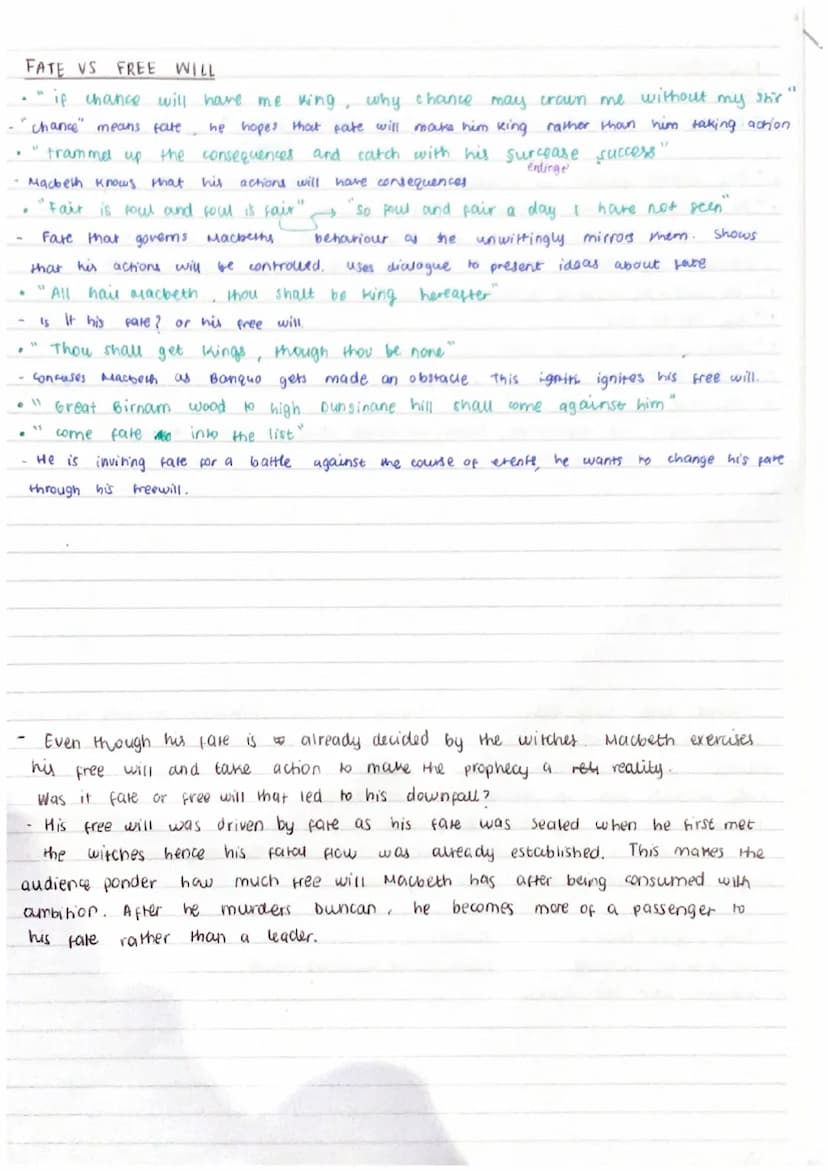 FATE VS FREE WILL
• "if chance will have me king, why chance may crown me without my stir"
- "chance" means fate, he hopes that fate will make him king rather than him taking action
• "trammel up the consequences and catch with his surcease success"
enlinge
- Macbeth knows that his actions will have consequences
• "Fair is foul and foul is fair" → "so foul and fair a day I have not seen"
- Fate that governs Macbeths behaviour as he unwittingly mirrors them. Shows
that his actions will be controlled. Uses dialogue to present ideas about fate
• "All hail Macbeth, thou shalt be king hereafter"
- Is it his fate? or his free will.
• "Thou shall get kings, though thou be none"
- Confuses Macbeth as Banquo gets made an obstacle. This igniti ignites his free will.
• "Great Birnam wood to high Dunsinane hill shall come against him"
• "come fate into the list"
- He is inviting fate for a battle against the course of events, he wants to change his fate
through his freewill.
- Even though his fate is already decided by the witches. Macbeth exercises
his free will and take action to make the prophecy a rely reality.
Was it fate or free will that led to his downfall?
- His free will was driven by fate as his fate was sealed when he first met
the witches hence his fatal flow was already established. This makes the
audience ponder how much free will Macbeth has after being consumed with
ambition. After he murders Duncan, he becomes more of a passenger to
his fate rather than a leader.